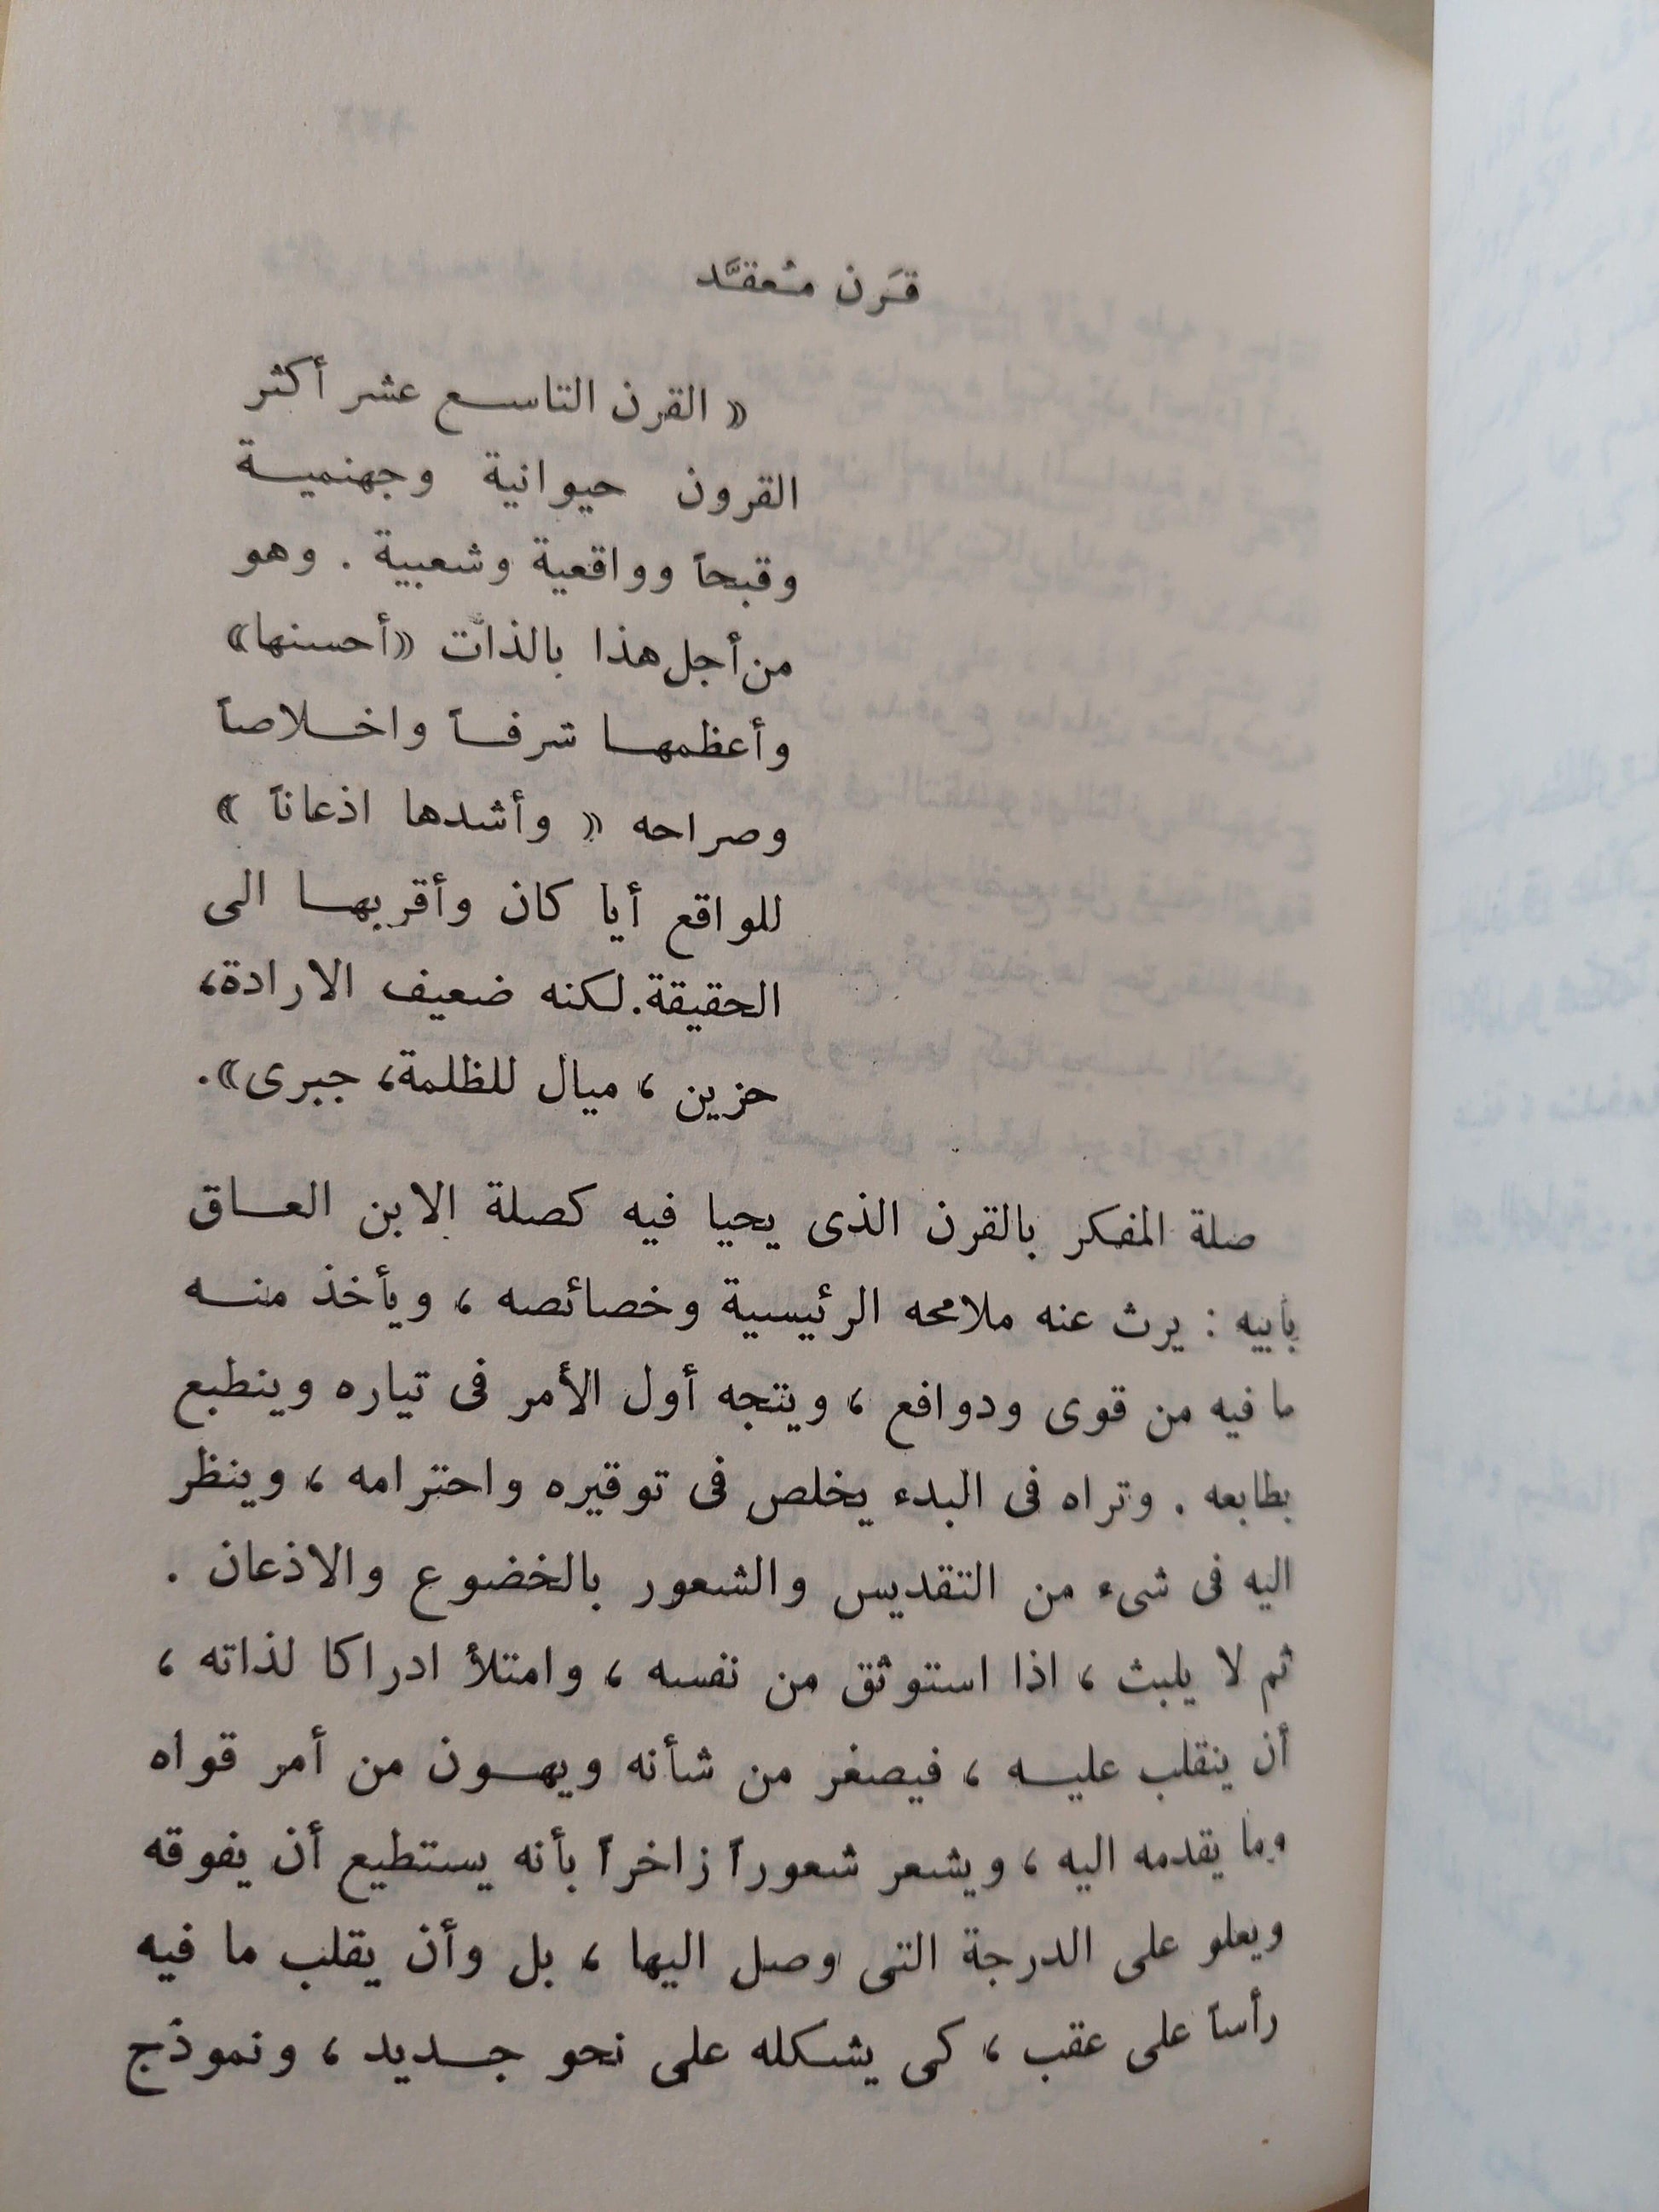 قَرن مُعقَّد
« القرن التاسع عشر أكثر
القرون حيوانية وجهنمية
وقبحاً وواقعية وشعبية . وهو
من أجل هذا بالذات «أحسنها»
وأعظمها شرفاً واخلاصاً
وصراحه « وأشدها اذعاناً »
للواقع أيا كان وأقربها الى
الحقيقة. لكنه ضعيف الارادة،
حزين ، ميال للظلمة، جبرى».
صلة المفكر بالقرن الذى يحيا فيه كصلة الابن العاق
بأبيه : يرث عنه ملامحه الرئيسية وخصائصه ، ويأخذ منه
ما فيه من قوى ودوافع ، ويتجه أول الأمر فى تياره وينطبع
بطابعه . وتراه فى البدء يخلص فى توقيره واحترامه ، وينظر
اليه فى شىء من التقديس والشعور بالخضوع والاذعان .
ثم لا يلبث ، اذا استوثق من نفسه ، وامتلأ ادراكا لذاته ،
أن ينقلب عليه ، فيصغر من شأنه ويهون من أمر قواه
وما يقدمه اليه ، ويشعر شعوراً زاخراً بأنه يستطيع أن يفوقه
ويعلو على الدرجة التى وصل اليها ، بل وأن يقلب ما فيه
رأساً على عقب ، كى يشكله على نحو جديد ، ونموذج